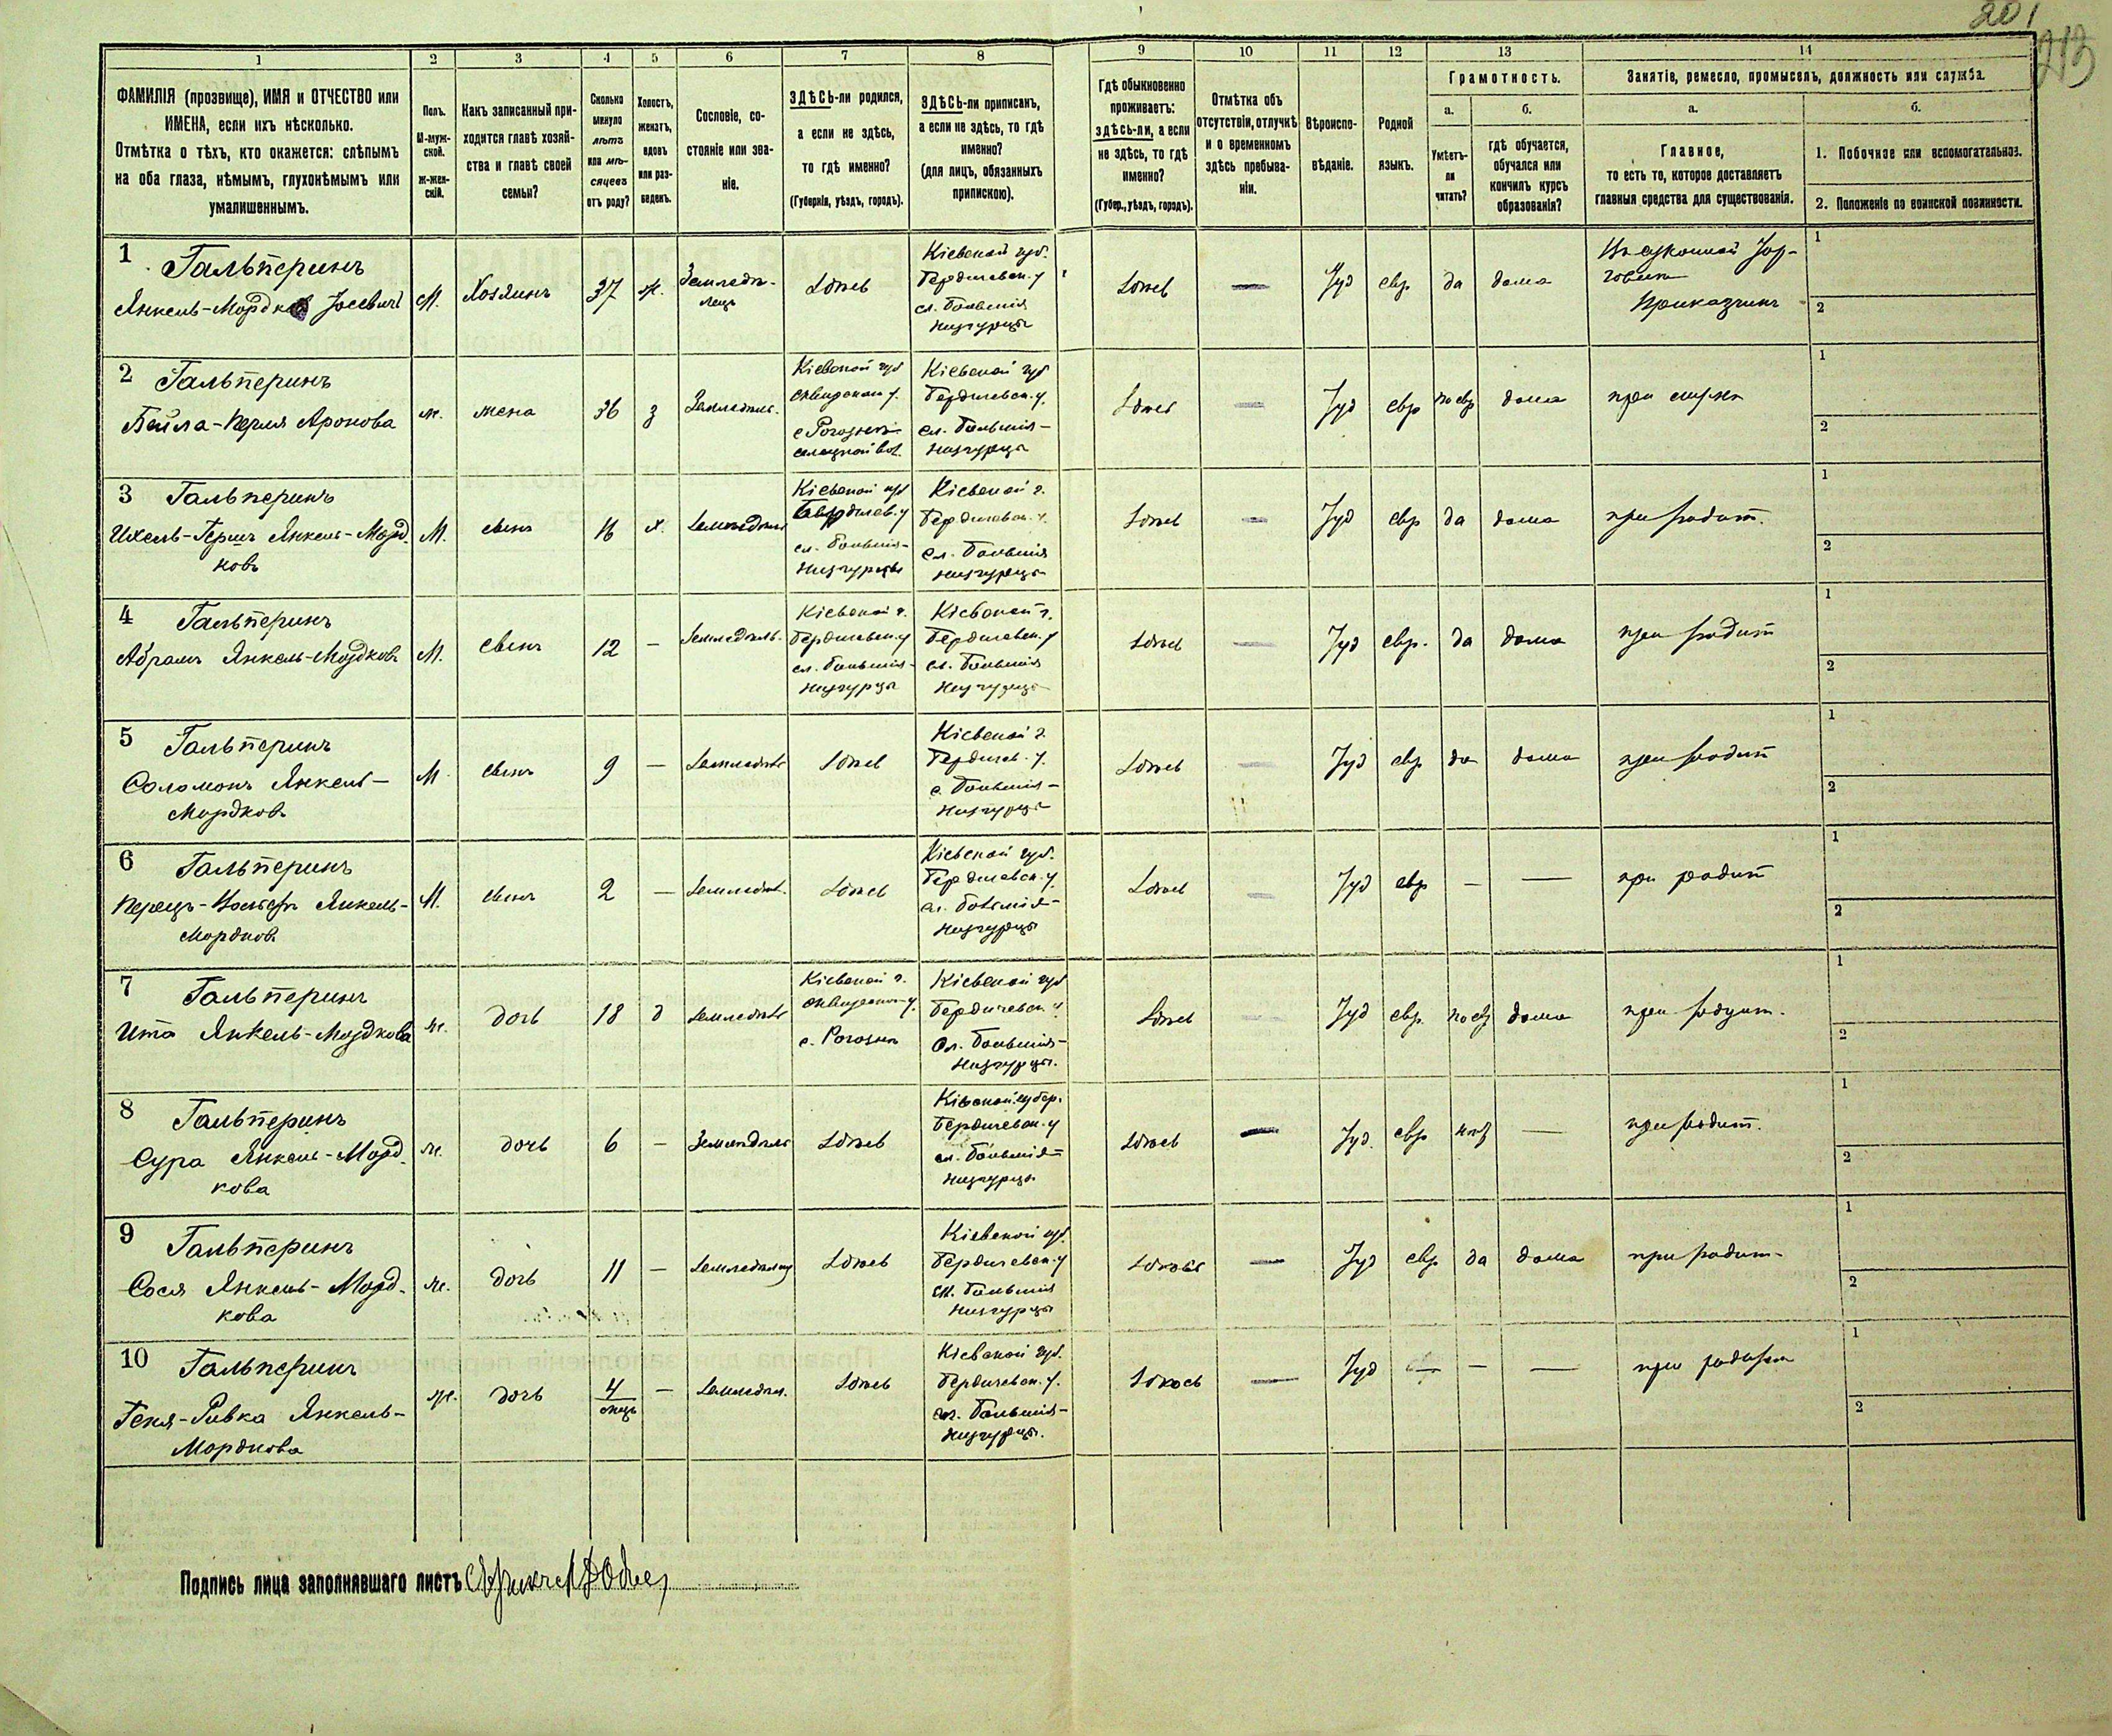 201
213
1
2
3
4
5
6
7
8
9
10
11
12
13
14
ФАМИЛІЯ (прозвище), ИМЯ и ОТЧЕСТВО или
ИМЕНА, если ихъ нѣсколько.
Отмѣтка о тѣхъ, кто окажется: слѣпымъ
на оба глаза, нѣмымъ, глухонѣмымъ или
умалишеннымъ.
Полъ.
М-муж-
ской.
ж-жен-
скій.
Какъ записанный при-
ходится главѣ хозяй-
ства и главѣ своей
семьи?
Сколько
минуло
лѣтъ
или мѣ-
сяцевъ
отъ роду?
Холостъ,
женатъ,
вдовъ
или раз-
веденъ.
Сословіе, со-
стояніе или зва-
ніе.
ЗДѢСЬ-ли родился,
а если не здѣсь,
то гдѣ именно?
(Губернія, уѣздъ, городъ).
ЗДѢСЬ-ли приписанъ,
а если не здѣсь, то гдѣ
именно?
(для лицъ, обязанныхъ
припискою).
Гдѣ обыкновенно
проживаетъ:
здѣсь-ли, а если
не здѣсь, то гдѣ
именно?
(Губер., уѣздъ, городъ).
Отмѣтка объ
отсутствіи, отлучкѣ
и о временномъ
здѣсь пребыва-
ніи.
Вѣроиспо-
вѣданіе.
Родной
языкъ.
Грамотность.
а.
Умѣетъ-
ли
читать?
б.
гдѣ обучается,
обучался или
кончилъ курсъ
образованія?
Занятіе, ремесло, промыселъ, должность или служба.
а.
Главное,
то есть то, которое доставляетъ
главныя средства для существованія.
б.
1. Побочное или вспомогательное.
2. Положеніе по воинской повинности.
1 Гальперинъ
Янкель-Мордко Іосевичъ
М.
Хозяинъ
37
ж.
Земледѣ-
лецъ
Здѣсь
Кіевской губ.
Бердичевск. у
сл. Большія
Низгурцы
Здѣсь
—
Іуд
евр
да
дома
Въ суконной Тор-
говли
Приказчикъ
1
2
2 Гальперинъ
Бейла-Перля Аронова
ж.
жена
36
з
Земледѣль.
Кіевской губ
Сквирскаго у.
Кіевской губ
Бердичевск. у.
сл. Большія-
Низгурцы
Здѣсь
—
Іуд
евр
по евр
дома
при мужѣ
1
2
3 Гальперинъ
Ихель-Гершъ Янкель-Морд
ковъ
М.
сынъ
16
х.
Земледѣль
Кіевской губ
Бердичев. у
сл. Большія-
Низгурцы
Кіевской г.
Бердичевск. у.
сл. Большія
Низгурцы
Здѣсь
—
Іуд
евр
да
дома
при родит.
1
2
4 Гальперинъ
Абрамъ Янкель-Мордковъ
М.
сынъ
12
—
Земледѣль.
Кіевской г.
Бердичевск. у
сл. Большія-
Низгурцы
Кіевской г.
Бердичевск. у
сл. Большія
Низгурцы
Здѣсь
—
Іуд
евр.
да
дома
при родит
1
2
5 Гальперинъ
Соломонъ Янкель-
Мордков.
М
сынъ
9
—
Земледѣль
Здѣсь
Кіевской г.
Бердичев. у.
с. Большія-
Низгурцы
Здѣсь
—
Іуд
евр
да
дома
при родит
1
2
6 Гальперинъ
Янкель-
Мордков.
М.
сынъ
2
—
Земледѣл.
Здѣсь
Кіевской губ.
Бердичевск. у.
сл. Большія-
Низгурцы
Здѣсь
—
Іуд
евр
—
—
при родит
1
2
7 Гальперинъ
Ита Янкель-Мордкова
ж.
дочь
18
д
Земледѣль
Кіевской г.
Сквирского у.
Кіевской губ
Бердичевск. у
Сл. Большія-
Низгурцы.
Здѣсь
—
Іуд
евр.
по евр
дома
при родит.
1
2
8 Гальперинъ
Сура Янкель-Морд
кова
ж.
дочь
6
—
Земледѣль
Здѣсь
Кіевской губер.
Бердичевск. у
сл. Большія-
Низгурцы
Здѣсь
—
Іуд.
евр
—
при родит.
1
2
9 Гальперинъ
Сося Янкель-Морд.
кова
ж.
дочь
11
—
Здѣсь
Кіевской губ.
Бердичевск. у
сл. Большія
Низгурцы
Здѣсь
—
Іуд
евр
да
дома
при родит-
1
2
10 Гальперинъ
Геня-Ривка Янкель-
Мордкова
ж.
дочь
4
мѣсц
—
Земледѣл.
Здѣсь
Кіевской губ.
Бердичевск. у.
сл. Большія-
Низгурцы.
Здѣсь
—
Іуд
—
—
при родит
1
2
Подпись лица заполнявшаго листъ